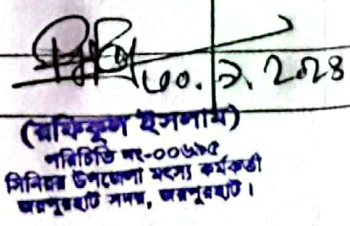 ৩০.৯.২০২৪
(রফিকুল ইসলাম)
পরিচিতি নং-০০৬৯৫
সিনিয়র উপজেলা মৎস্য কর্মকর্তা
জয়পুরহাট সদর, জয়পুরহাট।